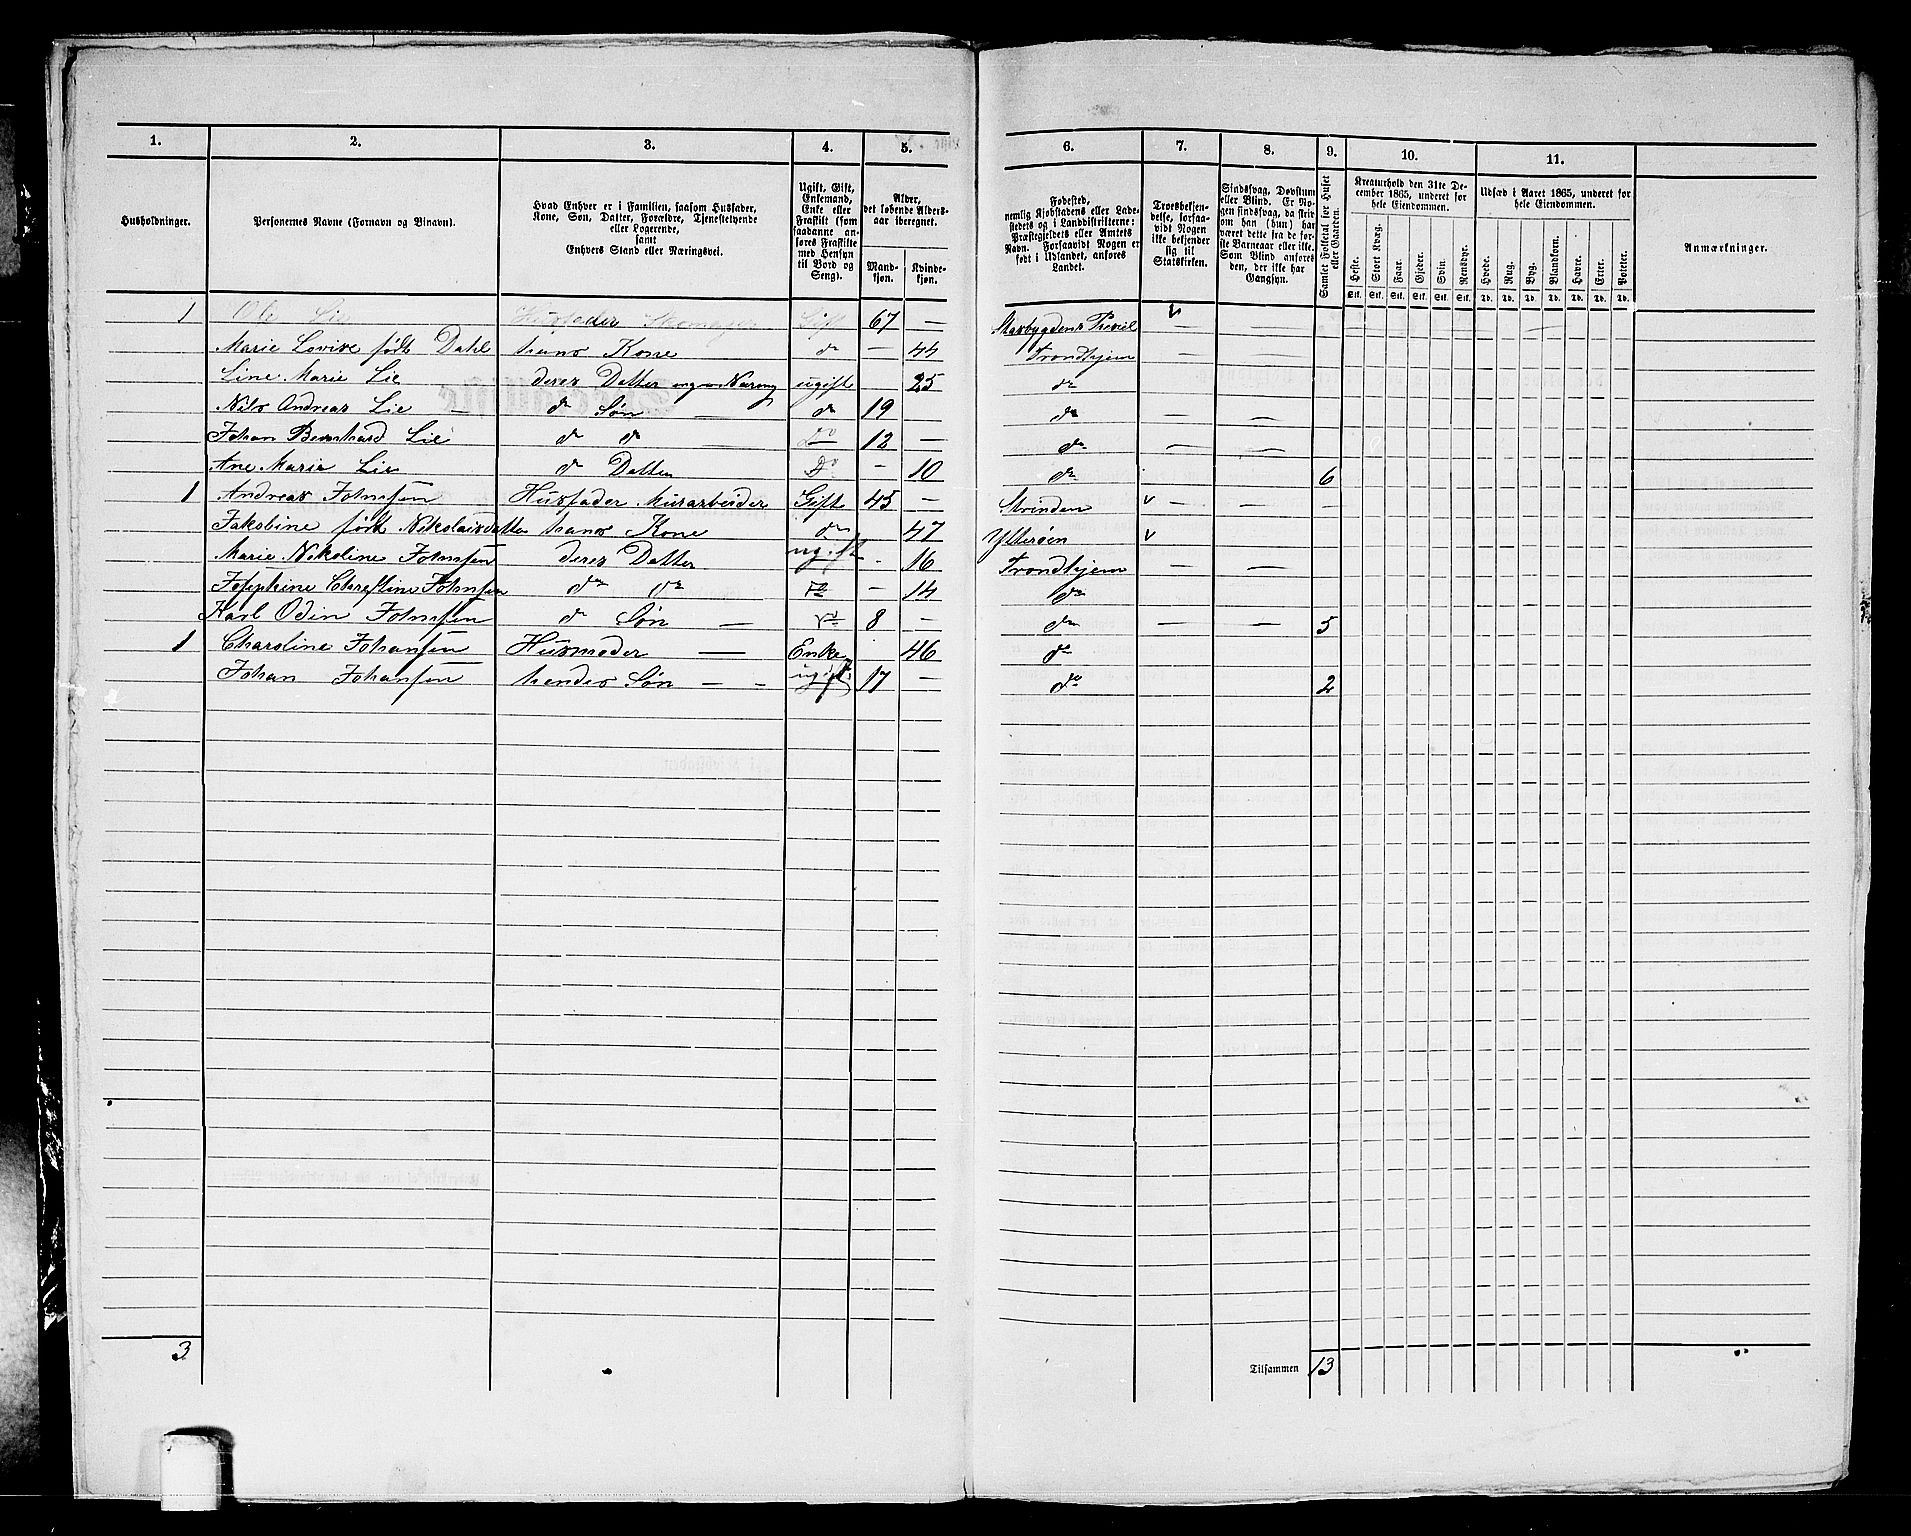 1. 2. 3. 4. 5. 6. 7. 8. 9. 10. 11.
Husholdninger.
Personernes Navne (Fornavn og Binavn).
Hvad Enhver er i Familien, saasom Husfader, Kone, Søn, Datter, Forældre, Tjenestetyende eller Logerende, samt Enhvers Stand eller Næringsvei.
Ugift, Gift, Enkemand, Enke eller Fraskilt (som saadanne anføres Fraskilte med Hensyn til Bord og Seng).
Alder, det løbende Alders-aar iberegnet.
Mandkjøn. Kvindekjøn.
Fødested, nemlig Kjøbstadens eller Ladestedets og i Landdistrikterne: Præstegjeldets eller Amtets Navn. Forsaavidt Nogen er født i Udlandet, anføres Landet.
Troesbekjendelse, forsaavidt Nogen ikke bekjender sig til Statskirken.
Sindssvag, Døvstum eller Blind. Er Nogen sindssvag, da skrives om han (hun) har været dette fra de første Barneaar eller ikke. Som Blind anføres den, der ikke har Gangsyn.
Samlet Folketal for Huset eller Gaarden.
Kreaturhold den 31te December 1865, underet for hele Eiendommen.
Heste. Stort Kvæg. Faar. Gjeder. Svin. Rensdyr.
Stk. Stk. Stk. Stk. Stk. Stk.
Udsæd i Aaret 1865, underet for hele Eiendommen.
Hvede. Rug. Byg. Blandkorn. Havre. Erter. Poteter.
Td. Td. Td. Td. Td. Td. Td.
Anmærkninger.
1 Ole Lie Husfader Gift 67 —
Marie Lovise født Dahl hans Kone do — 44 Trondhjem — —
Line Marie Lie deres Datter ingen Næring ugift 25 do
Nils Andreas Lie — do Søn — do 19 do — —
Johan Bernhard Lie do do — Do 12 — do — —
Ane Marie Lie do Datter Do — 10 do 6
1 Andreas Johnsen Husfader Murarbeider Gift 45 — Strinden v — — —
Jakobine født Nikolaisdatter hans Kone do 47 Ytterøen v
Marie Nikoline Johnsen deres Datter ugift 16 Trondhjem — —
Josephine Christine Johnsen do do do — 14 do
Karl Odin Johnsen do Søn — do 8 — do — — 5
1 Charoline Johansen Husmoder — Enke 46 do
Johan Johansen hendes Søn — — ugift 17 — do 2
3
Tilsammen 13